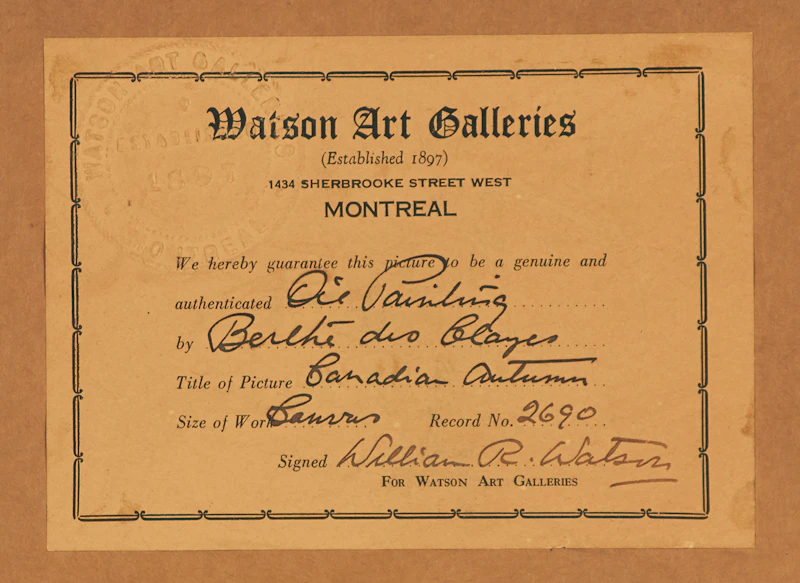 WATSON ART GALLERIES
ESTABLISHED
1897
MONTREAL
Watson Art Galleries
(Established 1897)
1434 SHERBROOKE STREET WEST
MONTREAL
We hereby guarantee this picture to be a genuine and
authenticated Oil Painting
by Berthé des Clayes
Title of Picture Canadian Autumn
Size of Work Canvas Record No. 2690
Signed William R. Watson
FOR WATSON ART GALLERIES